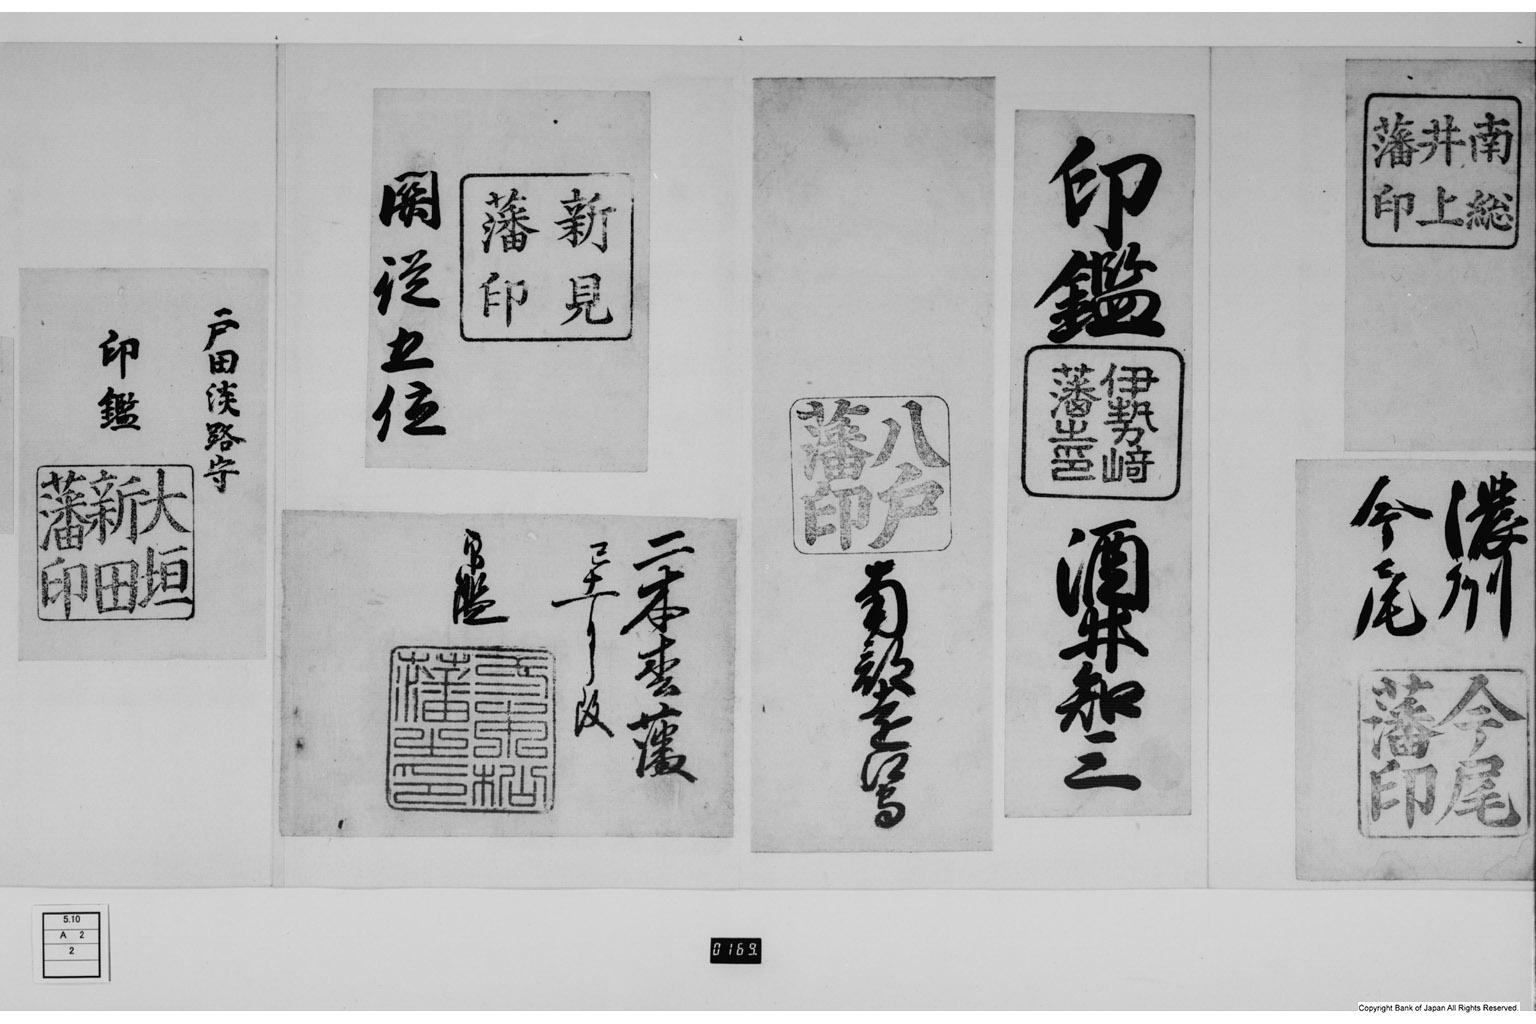 南総
井上
藩印
濃州
今尾
今尾
藩印
印鑑
伊勢崎
藩之邑
酒井知三
八戸
藩印
南部遠江守
新見
藩印
關従五位
二本松藩
己十一月改
印鑑
二本松
藩之印
戸田淡路守
印鑑
大垣
新田
藩印
5.10
A 2
2
0169
Copyright Bank of Japan All Rights Reserved.